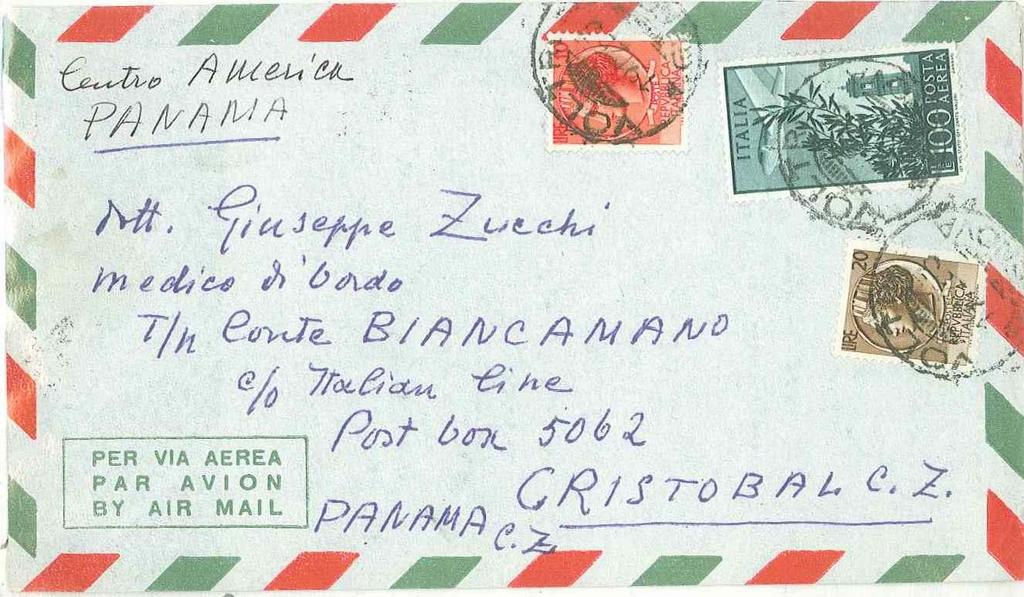 Centro America
PANAMA
Dott. Giuseppe Zucchi
medico di bordo
T/n Conte BIANCAMANO
c/o Italian line
Post box 5062
CRISTOBAL C. Z.
PANAMA C.Z.
PER VIA AEREA
PAR AVION
BY AIR MAIL
LIRE 10
REPVBBLICA
ITALIANA
ITALIA
£100 POSTA
AEREA
LIRE 20
REPVBBLICA
ITALIANA